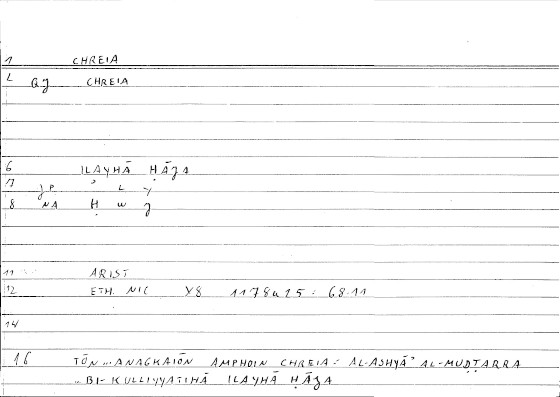 1 CHREIA
L QJ CHREIA
6 ILAYHĀ ḤĀJA
7 JP ʾ L Y
8 NA Ḥ W J
11 ARIST
12 ETH. NIC X8 1178a25 : 68.11
14
16 TŌN... ANAGKAIŌN AMPHOIN CHREIA : AL-ASHYĀʾ AL-MUḌṬARRA
.. BI-KULLIYYATIHĀ ILAYHĀ ḤĀJA